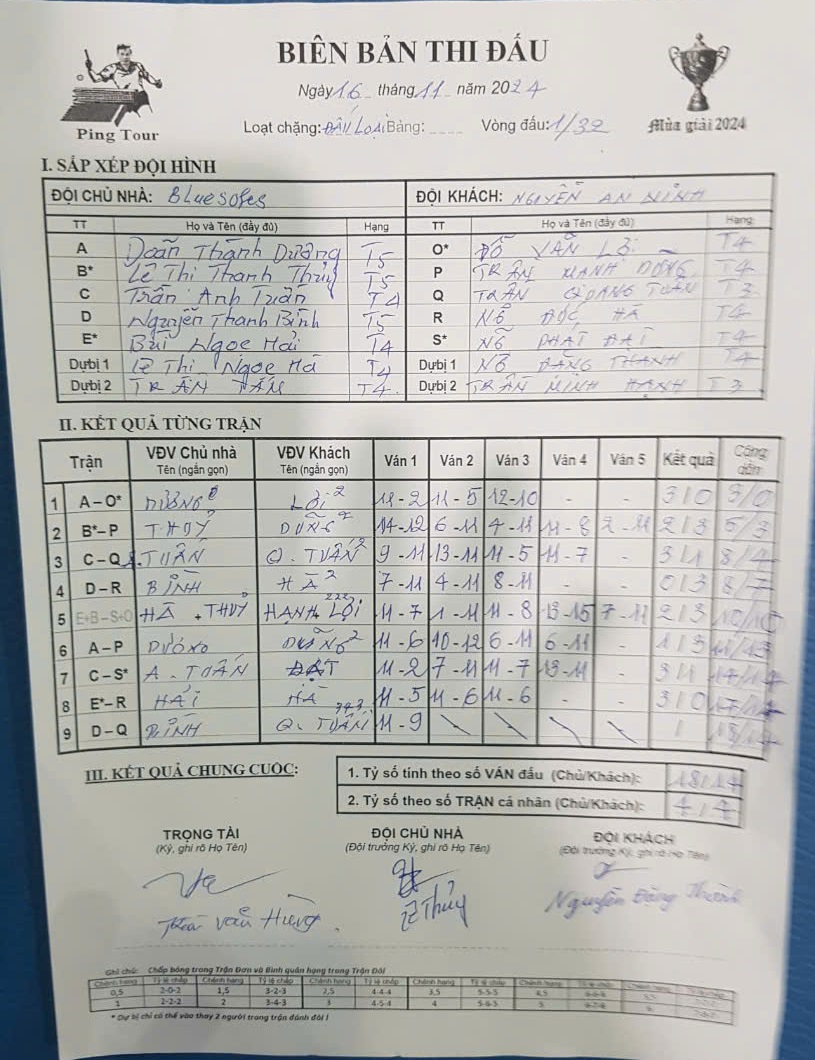 BIÊN BẢN THI ĐẤU
Ngày 16 tháng 11 năm 2024
Ping Tour
Loạt chặng: ĐẤU LOẠI Bảng: Vòng đấu: 1/32
Mùa giải 2024
I. SẮP XẾP ĐỘI HÌNH
ĐỘI CHỦ NHÀ: Bluesofes ĐỘI KHÁCH: NGUYỄN AN NINH
TT Họ và Tên (đầy đủ) Hạng TT Họ và Tên (đầy đủ) Hạng
A Doãn Thành Dương T5 O* ĐỖ VĂN LỢI T4
B* Lê Thị Thanh Thủy T5 P TRẦN MẠNH DŨNG T4
C Trần Anh Tuấn T4 Q TRẦN QUANG TUẤN T3
D Nguyễn Thanh Bình T5 R NGÔ ĐỨC HÀ T4
E* Bùi Ngọc Hải T4 S* T4
Dự bị 1 Lê Thị Ngọc Hà T4 Dự bị 1 T4
Dự bị 2 TRẦN TẤN T4 Dự bị 2 TRẦN MINH HẠNH T3
II. KẾT QUẢ TỪNG TRẬN
Trận VĐV Chủ nhà VĐV Khách Ván 1 Ván 2 Ván 3 Ván 4 Ván 5 Kết quả Cộng dồn
Tên (ngắn gọn) Tên (ngắn gọn)
1 A – O* DƯƠNG LỢI 2 11-2 11-5 12-10 - - 3/0 3/0
2 B*– P THUỶ DŨNG 2 14-12 6-11 4-11 11-8 2-11 2/3 5/3
3 C – Q A.TUẤN Q.TUẤN 2 9-11 13-11 11-5 11-7 - 3/1 8/4
4 D – R BÌNH HÀ 2 7-11 4-11 8-11 - - 0/3 8/7
5 E+B – S+O HÀ + THUỶ HẠNH LỢI 222 11-7 1-11 11-8 13-15 7-11 2/3 10/10
6 A – P DƯƠNG DŨNG 2 11-6 10-12 6-11 6-11 - 1/3 11/13
7 C – S* A.TUẤN ĐẠT 11-2 7-11 11-7 13-11 - 3/1 14/14
8 E*– R HẢI HÀ 11-5 11-6 11-6 - - 3/0 17/14
9 D – Q BÌNH Q.TUẤN 323 11-9 1 18/14
III. KẾT QUẢ CHUNG CUỘC:
1. Tỷ số tính theo số VÁN đấu (Chủ/Khách): 18/14
2. Tỷ số theo số TRẬN cá nhân (Chủ/Khách): 4/4
TRỌNG TÀI ĐỘI CHỦ NHÀ ĐỘI KHÁCH
(Ký, ghi rõ Họ Tên) (Đội trưởng Ký, ghi rõ Họ Tên) (Đội trưởng Ký, ghi rõ Họ Tên)
Văn Hùng Lê Thủy Nguyễn Đăng Thành
Ghi chú: Chấp bóng trong Trận Đơn và Bình quân hạng trong Trận Đôi
Chênh hạng Tỷ lệ chấp Chênh hạng Tỷ lệ chấp Chênh hạng Tỷ lệ chấp Chênh hạng Tỷ lệ chấp Chênh hạng
0,5 2-0-2 1,5 3-2-3 2,5 4-4-4 3,5 5-5-5 4,5
1 2-2-2 2 3-4-3 3 4-5-4 4 5-6-5 5
* Dự bị chỉ có thể vào thay 2 người trong trận đánh đôi !